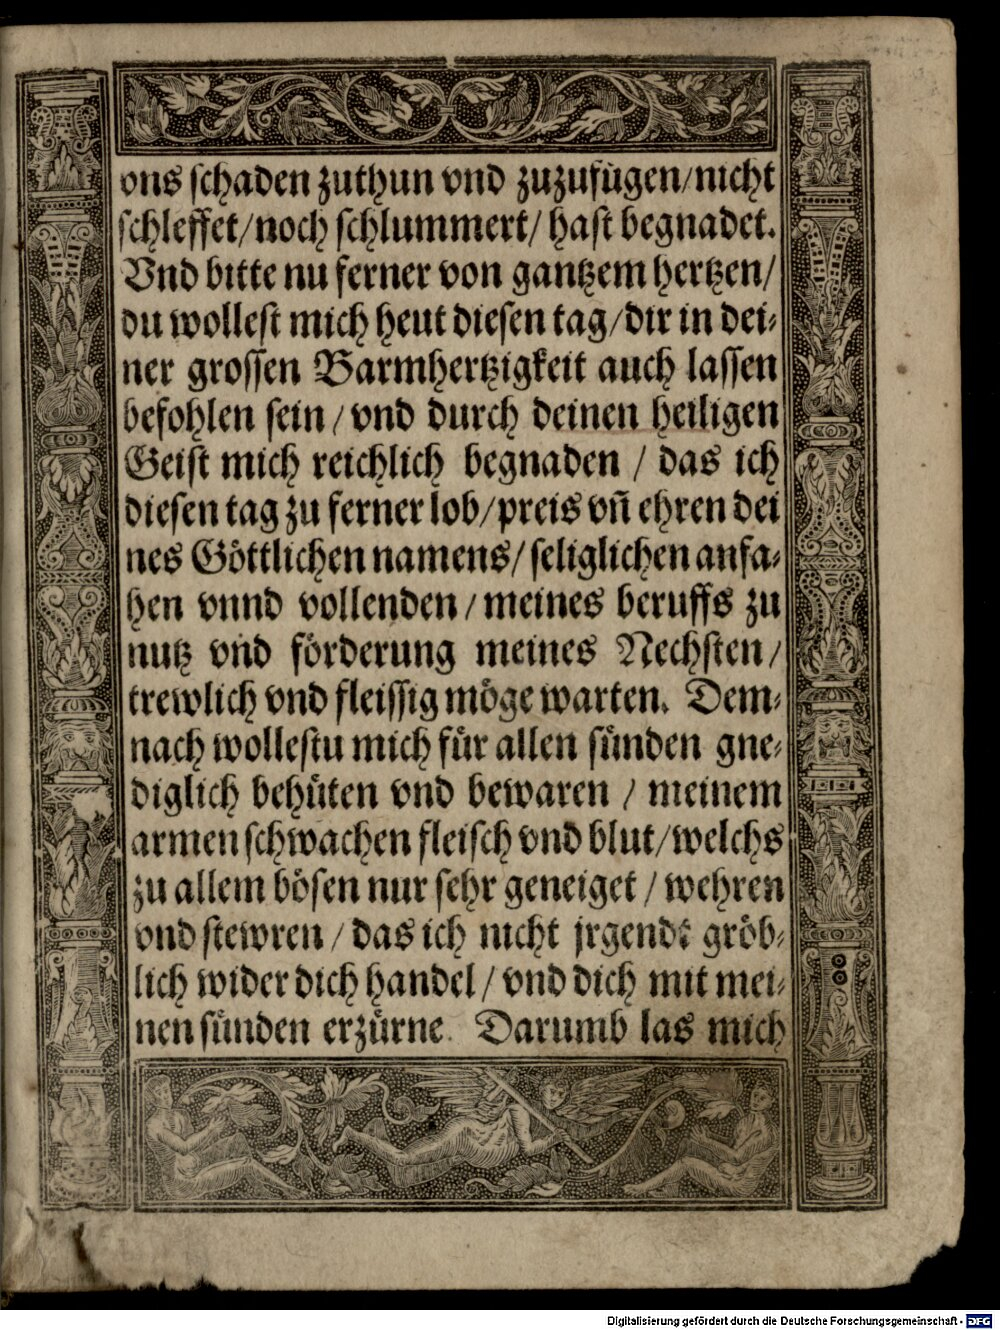 vns schaden zuthun vnd zuzufügen/nicht
schleffet/noch schlummert/hast begnadet.
Vnd bitte nu ferner von gantzem hertzen/
du wollest mich heut diesen tag/dir in dei⸗
ner grossen Barmhertzigkeit auch lassen
befohlen sein/vnd durch deinen heiligen
Geist mich reichlich begnaden/das ich
diesen tag zu ferner lob/preis vñ ehren dei
nes Göttlichen namens/seliglichen anfa⸗
hen vnnd vollenden/meines beruffs zu
nutz vnd förderung meines Nechsten/
trewlich vnd fleissig möge warten. Dem⸗
nach wollestu mich für allen sünden gne⸗
diglich behüten vnd bewaren/meinem
armen schwachen fleisch vnd blut/welchs
zu allem bösen nur sehr geneiget/wehren
vnd stewren/das ich nicht jrgendt gröb⸗
lich wider dich handel/vnd dich mit mei⸗
nen sünden erzürne. Darumb las mich
Digitalisierung gefördert durch die Deutsche Forschungsgemeinschaft - DFG